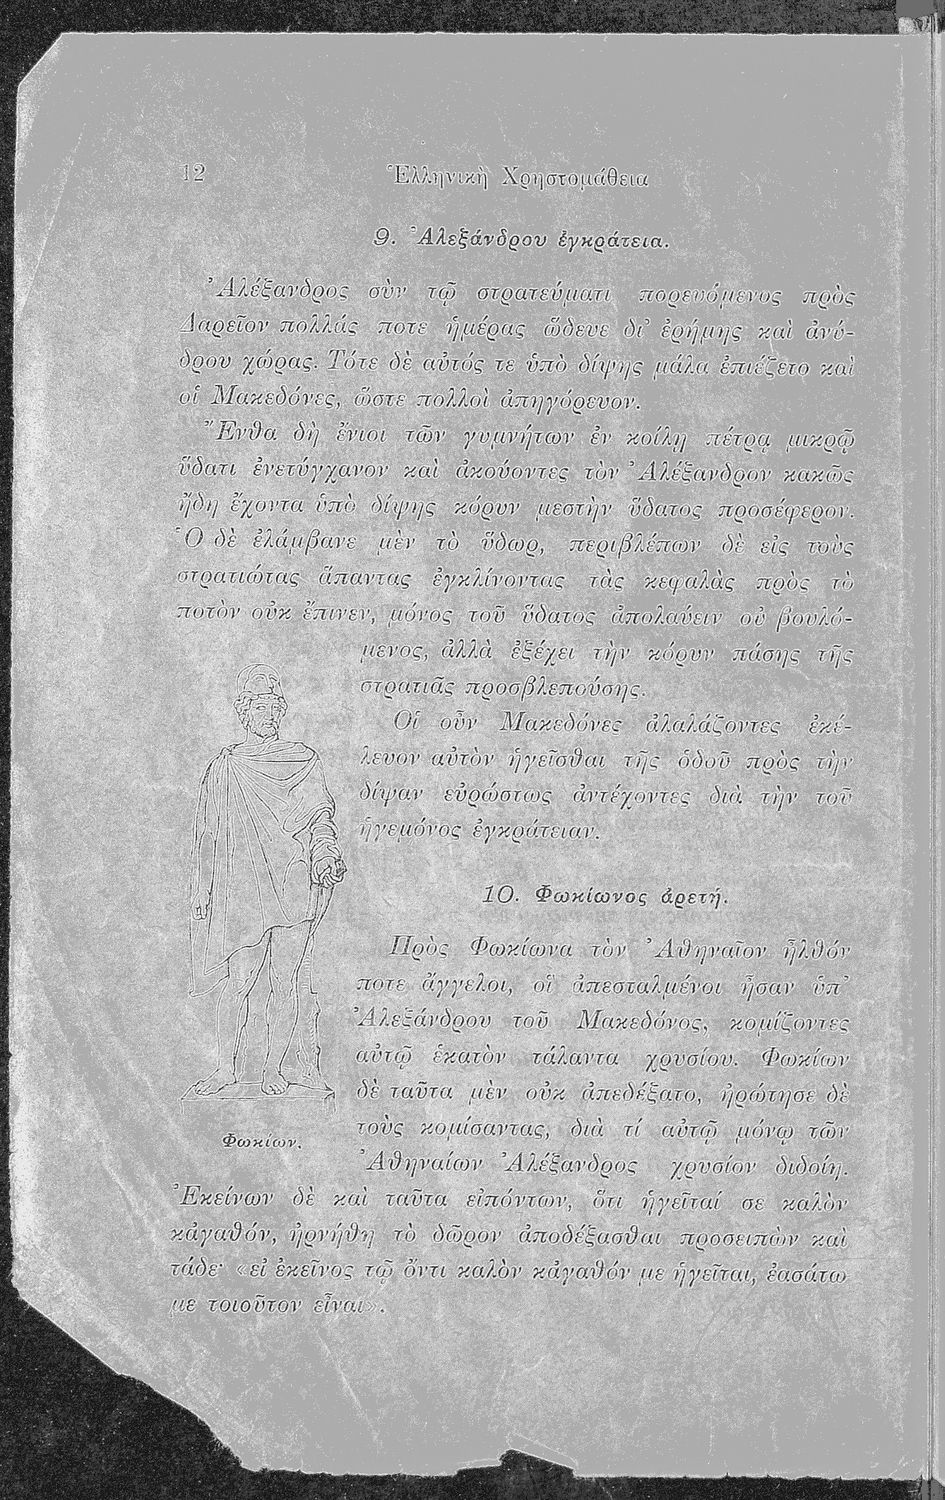 12
Ἑλληνικὴ Χρηστομάθεια
9. Ἀλεξάνδρου ἐγκράτεια.
Ἀλέξανδρος σὺν τῷ στρατεύματι πορευόμενος πρὸς
Δαρεῖον πολλάς ποτε ἡμέρας ὥδευε δι' ἐρήμης καὶ ἀνύ-
δρου χώρας. Τότε δὲ αὐτός τε ὑπὸ δίψης μάλα ἐπιέζετο καὶ
οἱ Μακεδόνες, ὥστε πολλοὶ ἀπηγόρευον.
Ἔνθα δὴ ἔνιοι τῶν γυμνήτων ἐν κοίλῃ πέτρᾳ μικρῷ
ὕδατι ἐνετύγχανον καὶ ἀκούοντες τὸν Ἀλέξανδρον κακῶς
ἤδη ἔχοντα ὑπὸ δίψης κόρυν μεστὴν ὕδατος προσέφερον.
Ὁ δὲ ἐλάμβανε μὲν τὸ ὕδωρ, περιβλέπων δὲ εἰς τοὺς
στρατιώτας ἅπαντας ἐγκλίνοντας τὰς κεφαλὰς πρὸς τὸ
ποτὸν οὐκ ἔπινεν, μόνος τοῦ ὕδατος ἀπολαύειν οὐ βουλό-
μενος, ἀλλὰ ἐξέχει τὴν κόρυν πάσης τῆς
στρατιᾶς προσβλεπούσης.
Οἱ οὖν Μακεδόνες ἀλαλάζοντες ἐκέ-
λευον αὐτὸν ἡγεῖσθαι τῆς ὁδοῦ πρὸς τὴν
δίψαν εὐρώστως ἀντέχοντες διὰ τὴν τοῦ
ἡγεμόνος ἐγκράτειαν.
10. Φωκίωνος ἀρετή.
Πρὸς Φωκίωνα τὸν Ἀθηναῖον ἦλθόν
ποτε ἄγγελοι, οἳ ἀπεσταλμένοι ἦσαν ὑπ'
Ἀλεξάνδρου τοῦ Μακεδόνος, κομίζοντες
αὐτῷ ἑκατὸν τάλαντα χρυσίου. Φωκίων
δὲ ταῦτα μὲν οὐκ ἀπεδέξατο, ἠρώτησε δὲ
τοὺς κομίσαντας, διὰ τί αὐτῷ μόνῳ τῶν
Ἀθηναίων Ἀλέξανδρος χρυσίον διδοίη.
Φωκίων.
Ἐκείνων δὲ καὶ ταῦτα εἰπόντων, ὅτι ἡγεῖταί σε καλὸν
κἀγαθόν, ἠρνήθη τὸ δῶρον ἀποδέξασθαι προσειπὼν καὶ
τάδε· «εἰ ἐκεῖνος τῷ ὄντι καλὸν κἀγαθόν με ἡγεῖται, ἐασάτω
με τοιοῦτον εἶναι».